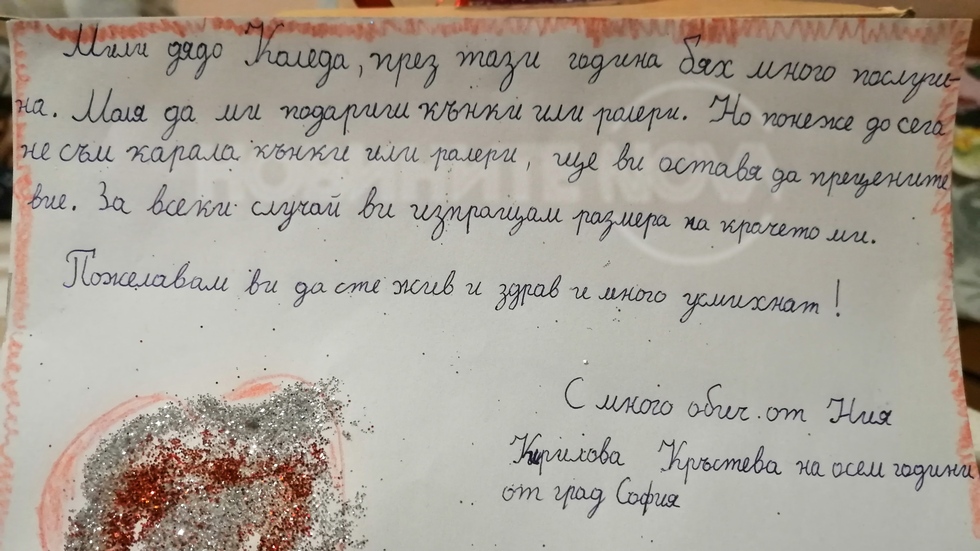 Мили дядо Коледа, през тази година бях много послуши-
на. Моля да ми подариш кънки или ролери. Но понеже до сега
не съм карала кънки или ролери, ще ви оставя да прецените
вие. За всеки случай ви изпращам размера на крачето ми.
Пожелавам ви да сте жив и здрав и много усмихнат!
С много обич от Ния
Кирилова Кръстева на осем години
от град София
НОВИНИТЕ NOVA